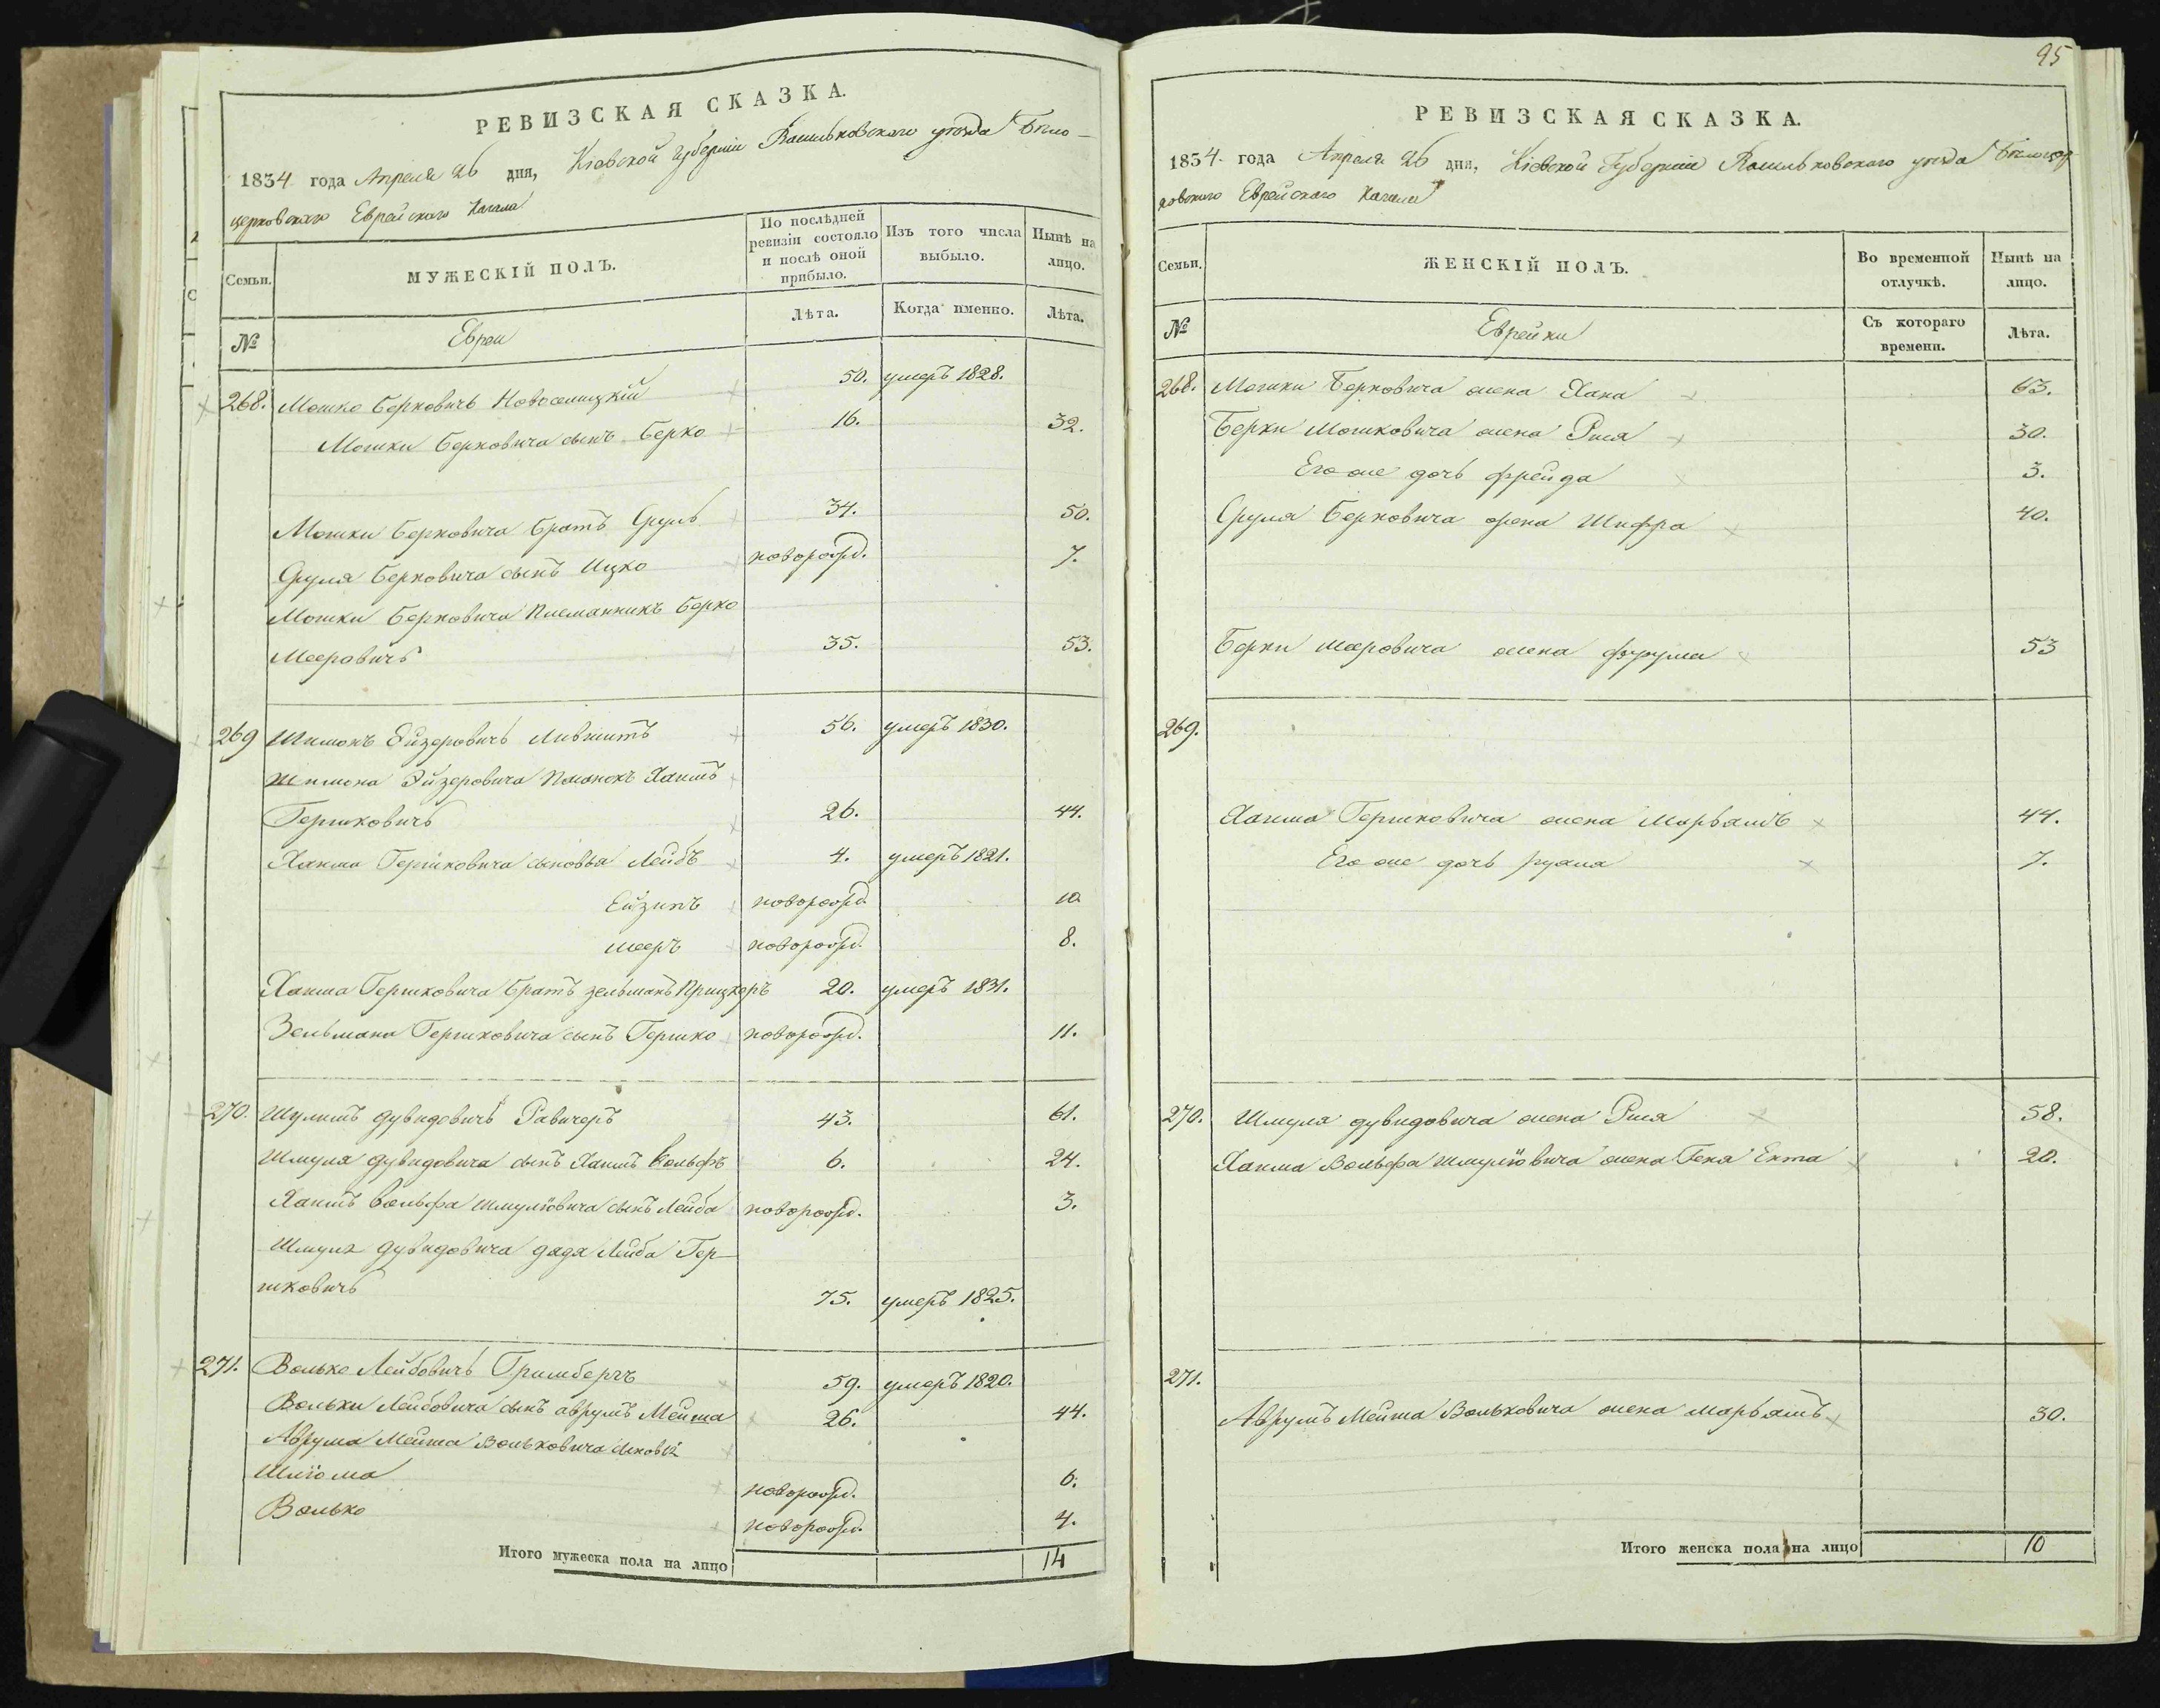 РЕВИЗСКАЯ СКАЗКА.
1834 года Апреля 26 дня, Кіевской губерніи Васильковского уезда Бѣло-
церковского Еврейского Кагала
Семьи.
МУЖЕСКІЙ ПОЛЪ.
По послѣдней ревизіи состояло и послѣ оной прибыло.
Изъ того числа выбыло.
Нынѣ на лицо.
№
Евреи
Лѣта.
Когда именно.
Лѣта.
268. Мошко Берковичъ Новоселицкій 50. умеръ 1828.
Мошки Берковича сынъ Берко 16. 32.
Мошки Берковича братъ Сруль 34. 50.
Сруля Берковича сынъ Ицко новорожд. 7.
Мошки Берковича племанникъ Берко
Мееровичъ 35. 53.
269 Шимонъ Ейзеровичъ Лившитъ 56. умеръ 1830.
Шимона Эйзеровича Хаимъ
Гершковичъ 26. 44.
Хаима Гершковича сыновья Лейбъ 4. умеръ 1821.
Ейзипъ новорожд. 10
Мееръ новорожд. 8.
Хаима Гершковича братъ Зельманъ Прицкеръ 20. умеръ 1831.
Зельмана Гершковича сынъ Гершко новорожд. 11.
270. Шулимъ Дувидовичъ Равичеръ 43. 61.
Шмуля Дувидовича сынъ Хаимъ Вольфъ 6. 24.
Хаимъ Вольфа Шмулiовича сынъ Лейба новорожд. 3.
Шмуля Дувидовича дядя Лейба Гер-
шковичъ 75. умеръ 1825.
271. Волько Лейбовичъ Гримбергъ 59. умеръ 1820.
Вольки Лейбовича сынъ Аврумъ Мейша 26. 44.
Аврума Мейша Вольковича сыновья
Шліома новорожд. 6.
Волько новорожд. 4.
Итого мужеска пола на лицо 14
95
РЕВИЗСКАЯ СКАЗКА.
1834 года Апреля 26 дня, Кіевской Губерніи Васильковского уезда Бѣлоцер
ковского Еврейского Кагала
Семьи.
ЖЕНСКІЙ ПОЛЪ.
Во временной отлучкѣ.
Нынѣ на лицо.
№
Еврейки
Съ котораго времени.
Лѣта.
268. Мошки Берковича жена Хана 63.
Берки Мошковича жена Рися 30.
Его же дочь Фрейда 3.
Сруля Берковича жена Шифра 40.
Берки Мееровича жена Фрума 53
269.
Хаима Гершковича жена Марьямъ 44.
Его же дочь Рухля 7.
270. Шмуля Дувидовича жена Рися 58.
Хаима Вольфа Шмуліовича жена Гена Ента 20.
271.
Аврумъ Мейша Вольковича жена Марьямъ 30.
Итого женска пола на лицо 10